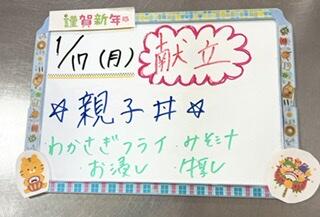 謹賀新年
1/17(月) 献立
☆親子丼☆
・わかさぎフライ ・みそ汁
・お浸し ・牛乳